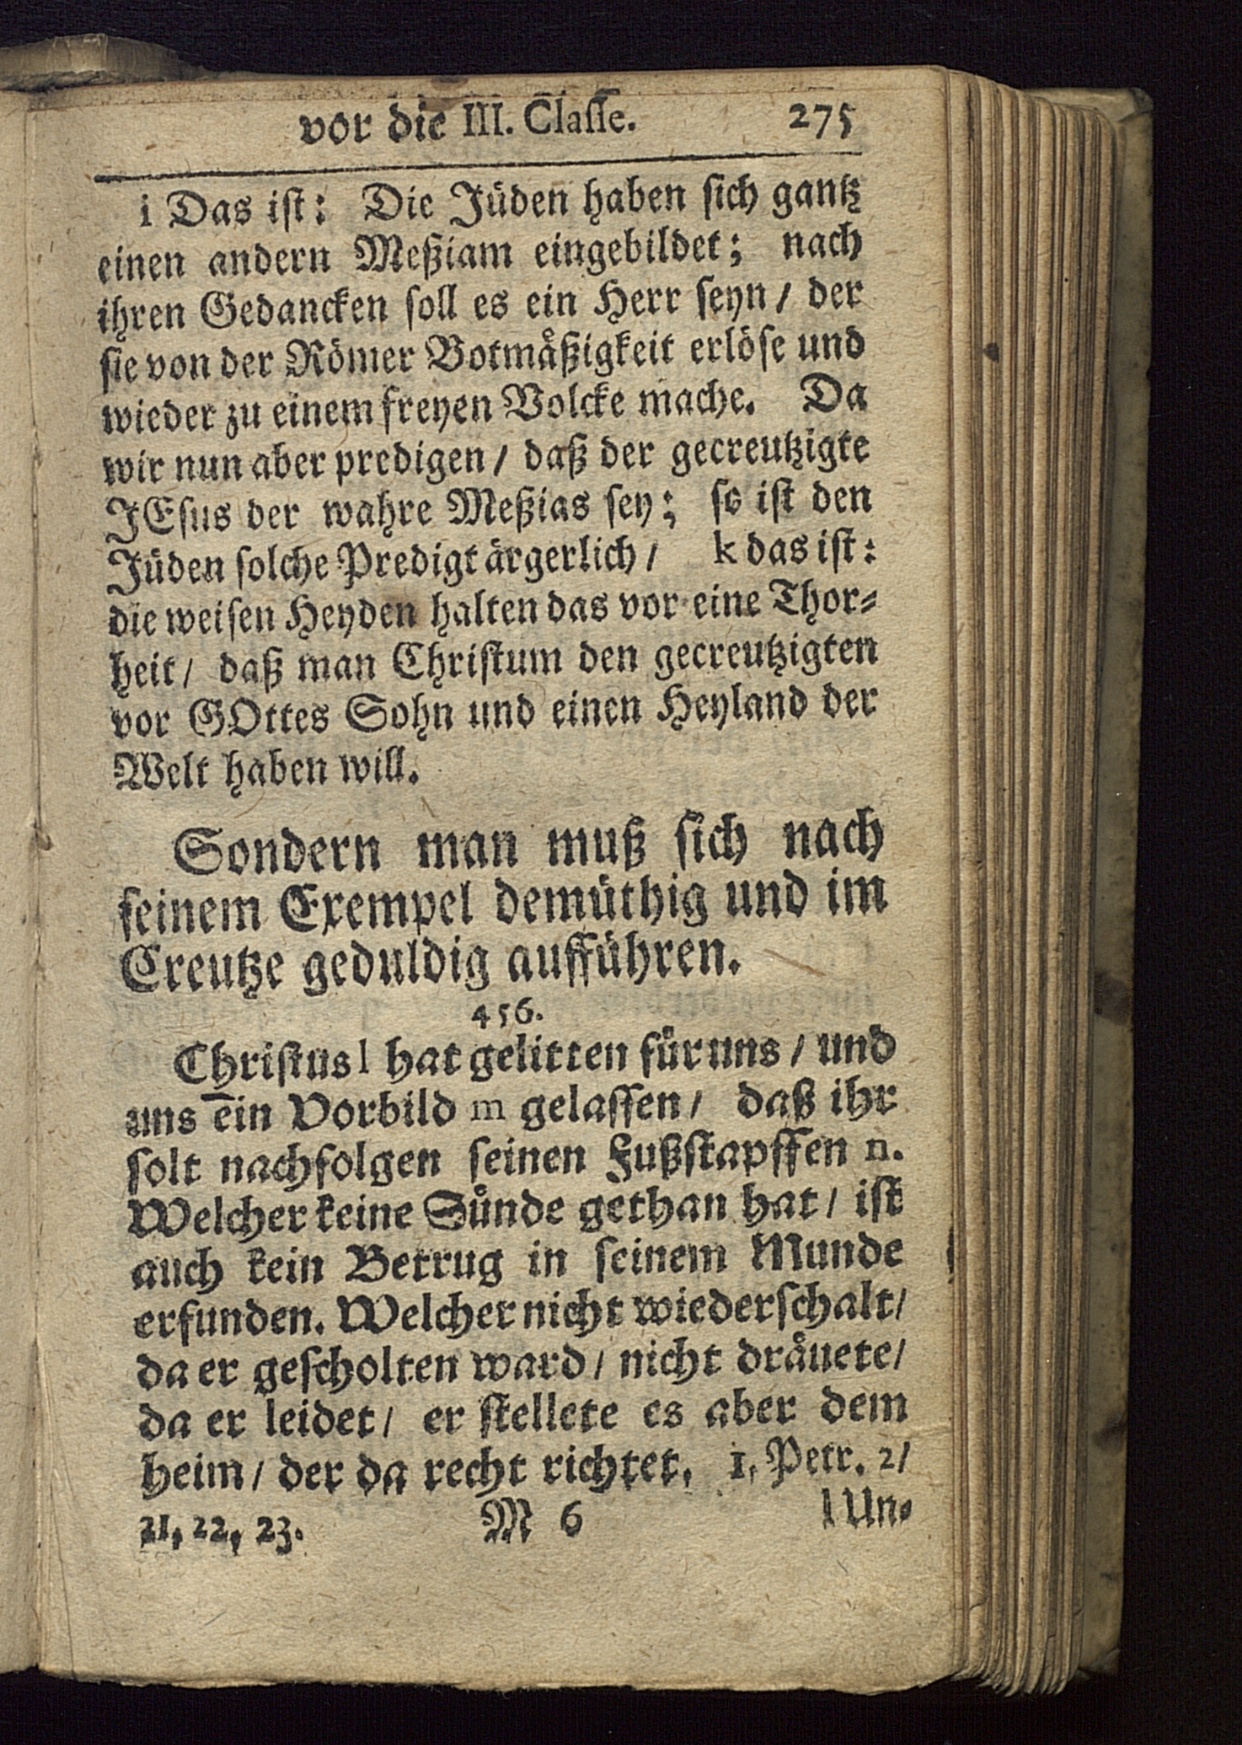 vor die III. Classe. 275
i Das ist: Die Jüden haben sich gantz
einen andern Meßiam eingebildet; nach
ihren Gedancken soll es ein Herr seyn / der
sie von der Römer Botmäßigkeit erlöse und
wieder zu einem freyen Volcke mache. Da
wir nun aber predigen / daß der gecreutzigte
JEsus der wahre Meßias sey; so ist den
Jüden solche Predigt ärgerlich / k das ist:
die weisen Heyden halten das vor eine Thor-
heit / daß man Christum den gecreutzigten
vor GOttes Sohn und einen Heyland der
Welt haben will.
Sondern man muß sich nach
seinem Exempel demüthig und im
Creutze geduldig aufführen.
456.
Christus l hat gelitten für uns / und
uns ein Vorbild m gelassen / daß ihr
solt nachfolgen seinen Fußstapffen n.
Welcher keine Sünde gethan hat / ist
auch kein Betrug in seinem Munde
erfunden. Welcher nicht wiederschalt /
da er gescholten ward / nicht dräuete /
da er leidet / er stellete es aber dem
heim / der da recht richtet. 1. Petr. 2 /
21, 22, 23. M 6 l Un-